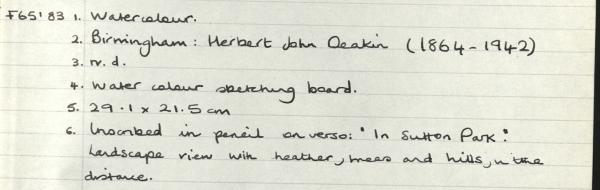 F65'83 1. Watercolour.
2. Birmingham: Herbert John Deakin (1864-1942)
3. n.d.
4. Water colour sketching board.
5. 29.1 x 21.5 cm
6. Inscribed in pencil on verso: "In Sutton Park".
Landscape view with heather, trees and hills, in the
distance.